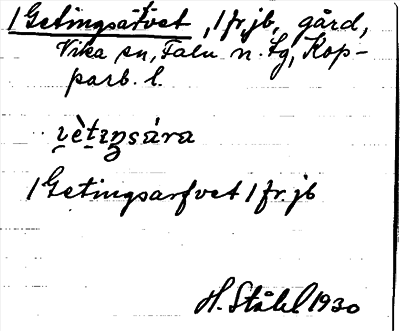 /Getingsarvet, /fr. jb, gård,
Vika sn, Falu n. tg, Kop-
parb. l.
i̯ètiŋsára
/Getingsarfvet /fr. jb
H. Ståhl 1930